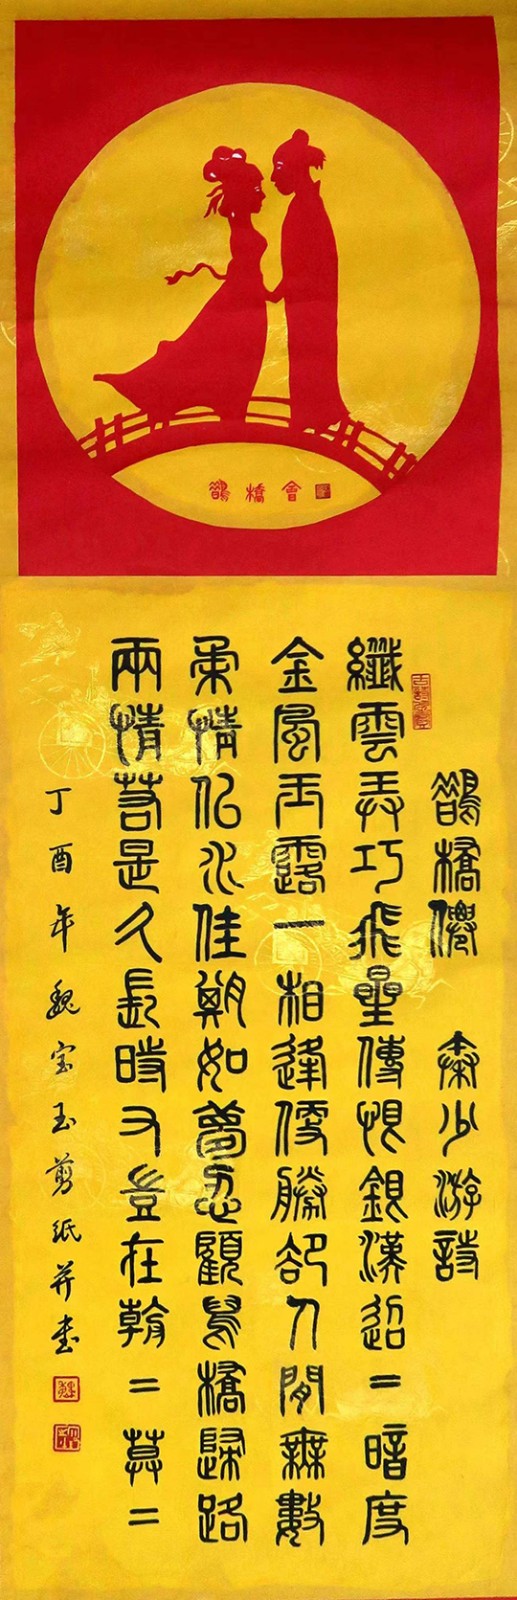 鵲橋會
鵲橋僊 秦少游詩
纖雲弄巧飛星傳恨銀漢迢〓暗度
金風玉露一相逢便勝卻人間無數
柔情佀水佳期如夢忍顧舄橋歸路
兩情若是久長時又豈在朝〓暮〓
丁酉年魏宝玉剪紙并書